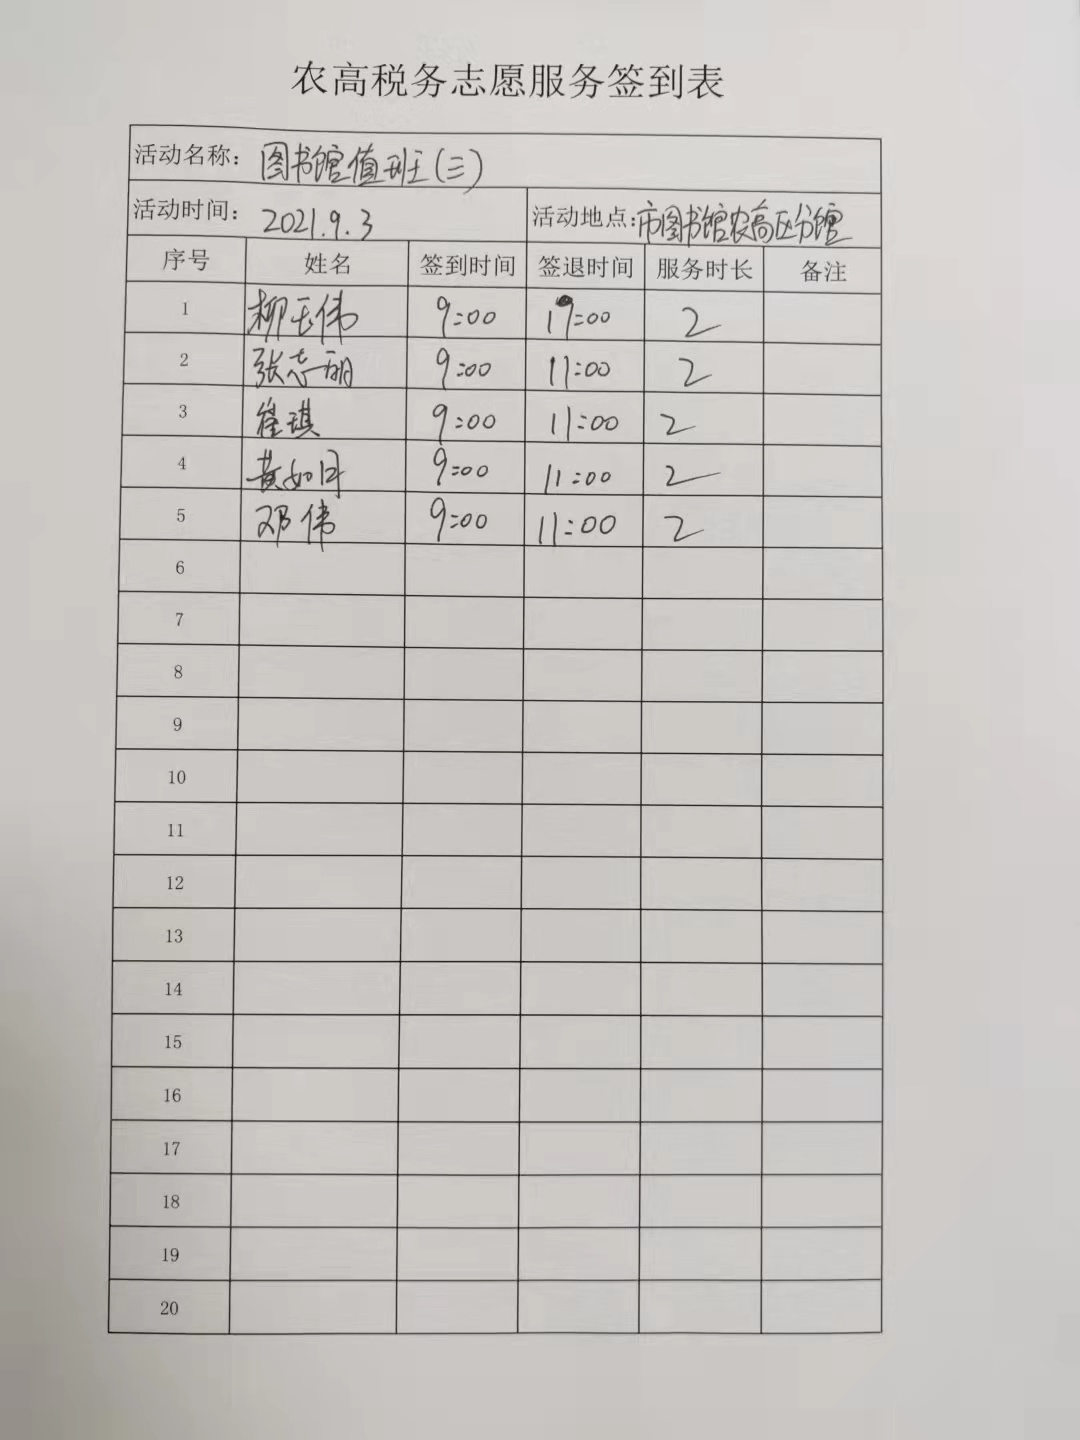 农高税务志愿服务签到表
活动名称: 图书馆值班(三)
活动时间: 2021.9.3 活动地点:市图书馆农高区分馆
序号 姓名 签到时间 签退时间 服务时长 备注
1 柳玉伟 9:00 :00 2
2 张志明 9:00 11:00 2
3 崔琪 9:00 11:00 2
4 黄如月 9:00 11:00 2
5 邓伟 9:00 11:00 2
6
7
8
9
10
11
12
13
14
15
16
17
18
19
20